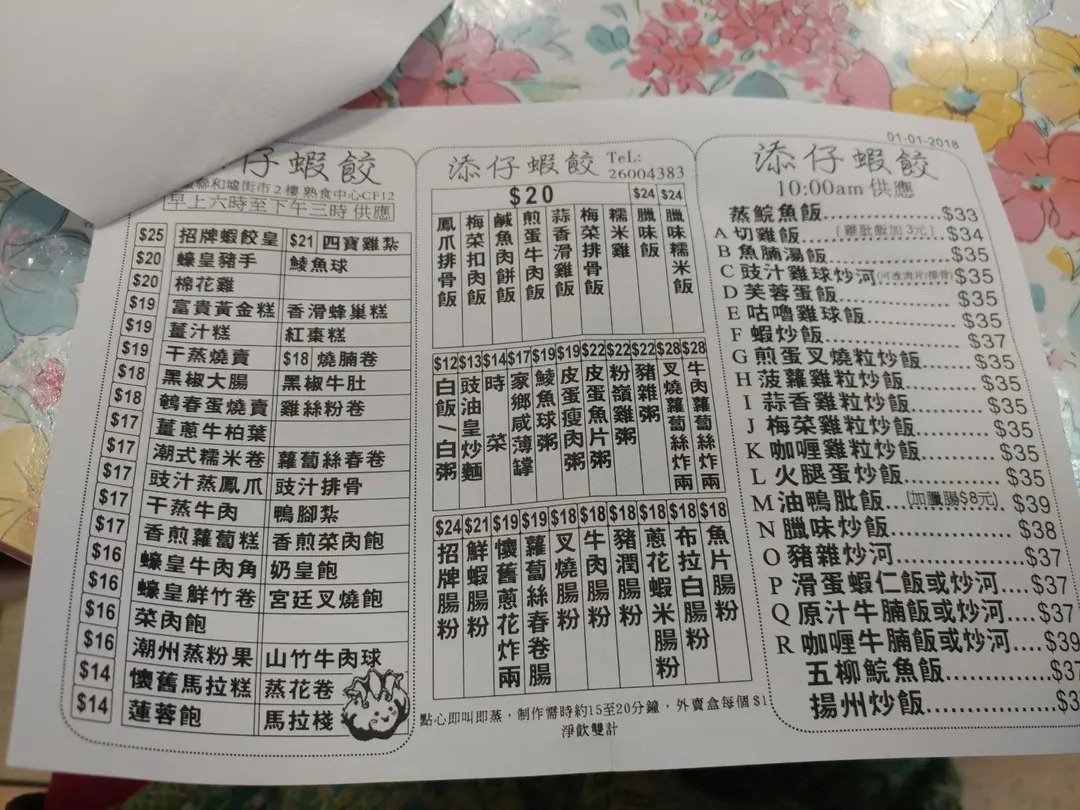 仔蝦餃
聯和墟街市2樓 熟食中心CF12
早上六時至下午三時 供應
$25 招牌蝦餃皇 $21 四寶雞紮
$20 蠔皇豬手 鯪魚球
$20 棉花雞
$19 富貴黃金糕 香滑蜂巢糕
$19 薑汁糕 紅棗糕
$19 干蒸燒賣 $18 燒腩卷
$18 黑椒大腸 黑椒牛肚
$18 鵪春蛋燒賣 雞絲粉卷
$17 薑蔥牛柏葉
$17 潮式糯米卷 蘿蔔絲春卷
$17 豉汁蒸鳳爪 豉汁排骨
$17 干蒸牛肉 鴨腳紮
$17 香煎蘿蔔糕 香煎菜肉飽
$16 蠔皇牛肉角 奶皇飽
$16 蠔皇鮮竹卷 宮廷叉燒飽
$16 菜肉飽
$16 潮州蒸粉果 山竹牛肉球
$14 懷舊馬拉糕 蒸花卷
$14 蓮蓉飽 馬拉棧
添仔蝦餃
TeL:
26004383
$20 $24 $24
鳳爪排骨飯
梅菜扣肉飯
鹹魚肉餅飯
煎蛋牛肉飯
蒜香滑雞飯
梅菜排骨飯
糯米雞
臘味飯
臘味糯米飯
$12 白飯/白粥
$13 豉油皇炒麵
$14 時菜
$17 家鄉咸薄罉
$19 鯪魚球粥
$19 皮蛋瘦肉粥
$22 皮蛋魚片粥
$22 粉嶺雞粥
$22 豬雜粥
$28 叉燒蘿蔔絲炸兩
$28 牛肉蘿蔔絲炸兩
$24 招牌腸粉
$21 鮮蝦腸粉
$19 懷舊蔥花炸兩
$19 蘿蔔絲春卷腸
$18 叉燒腸粉
$18 牛肉腸粉
$18 豬潤腸粉
$18 蔥花蝦米腸粉
$18 布拉白腸粉
$18 魚片腸粉
點心即叫即蒸，制作需時約15至20分鐘，外賣盒每個$1
淨飲雙計
01-01-2018
添仔蝦餃
10:00am 供應
蒸鯇魚飯.................$33
A 切雞飯....(雞肶飯加3元).$34
B 魚腩湯飯..............$35
C 豉汁雞球炒河(可改肉片/排骨)$35
D 芙蓉蛋飯..............$35
E 咕嚕雞球飯............$35
F 蝦炒飯................$37
G 煎蛋叉燒粒炒飯........$35
H 菠蘿雞粒炒飯..........$35
I 蒜香雞粒炒飯..........$35
J 梅菜雞粒炒飯..........$35
K 咖喱雞粒炒飯..........$35
L 火腿蛋炒飯............$35
M 油鴨肶飯...(加臘腸$8元).$39
N 臘味炒飯..............$38
O 豬雜炒河..............$37
P 滑蛋蝦仁飯或炒河....$37
Q 原汁牛腩飯或炒河....$37
R 咖喱牛腩飯或炒河....$39
五柳鯇魚飯..............$37
揚州炒飯................$3